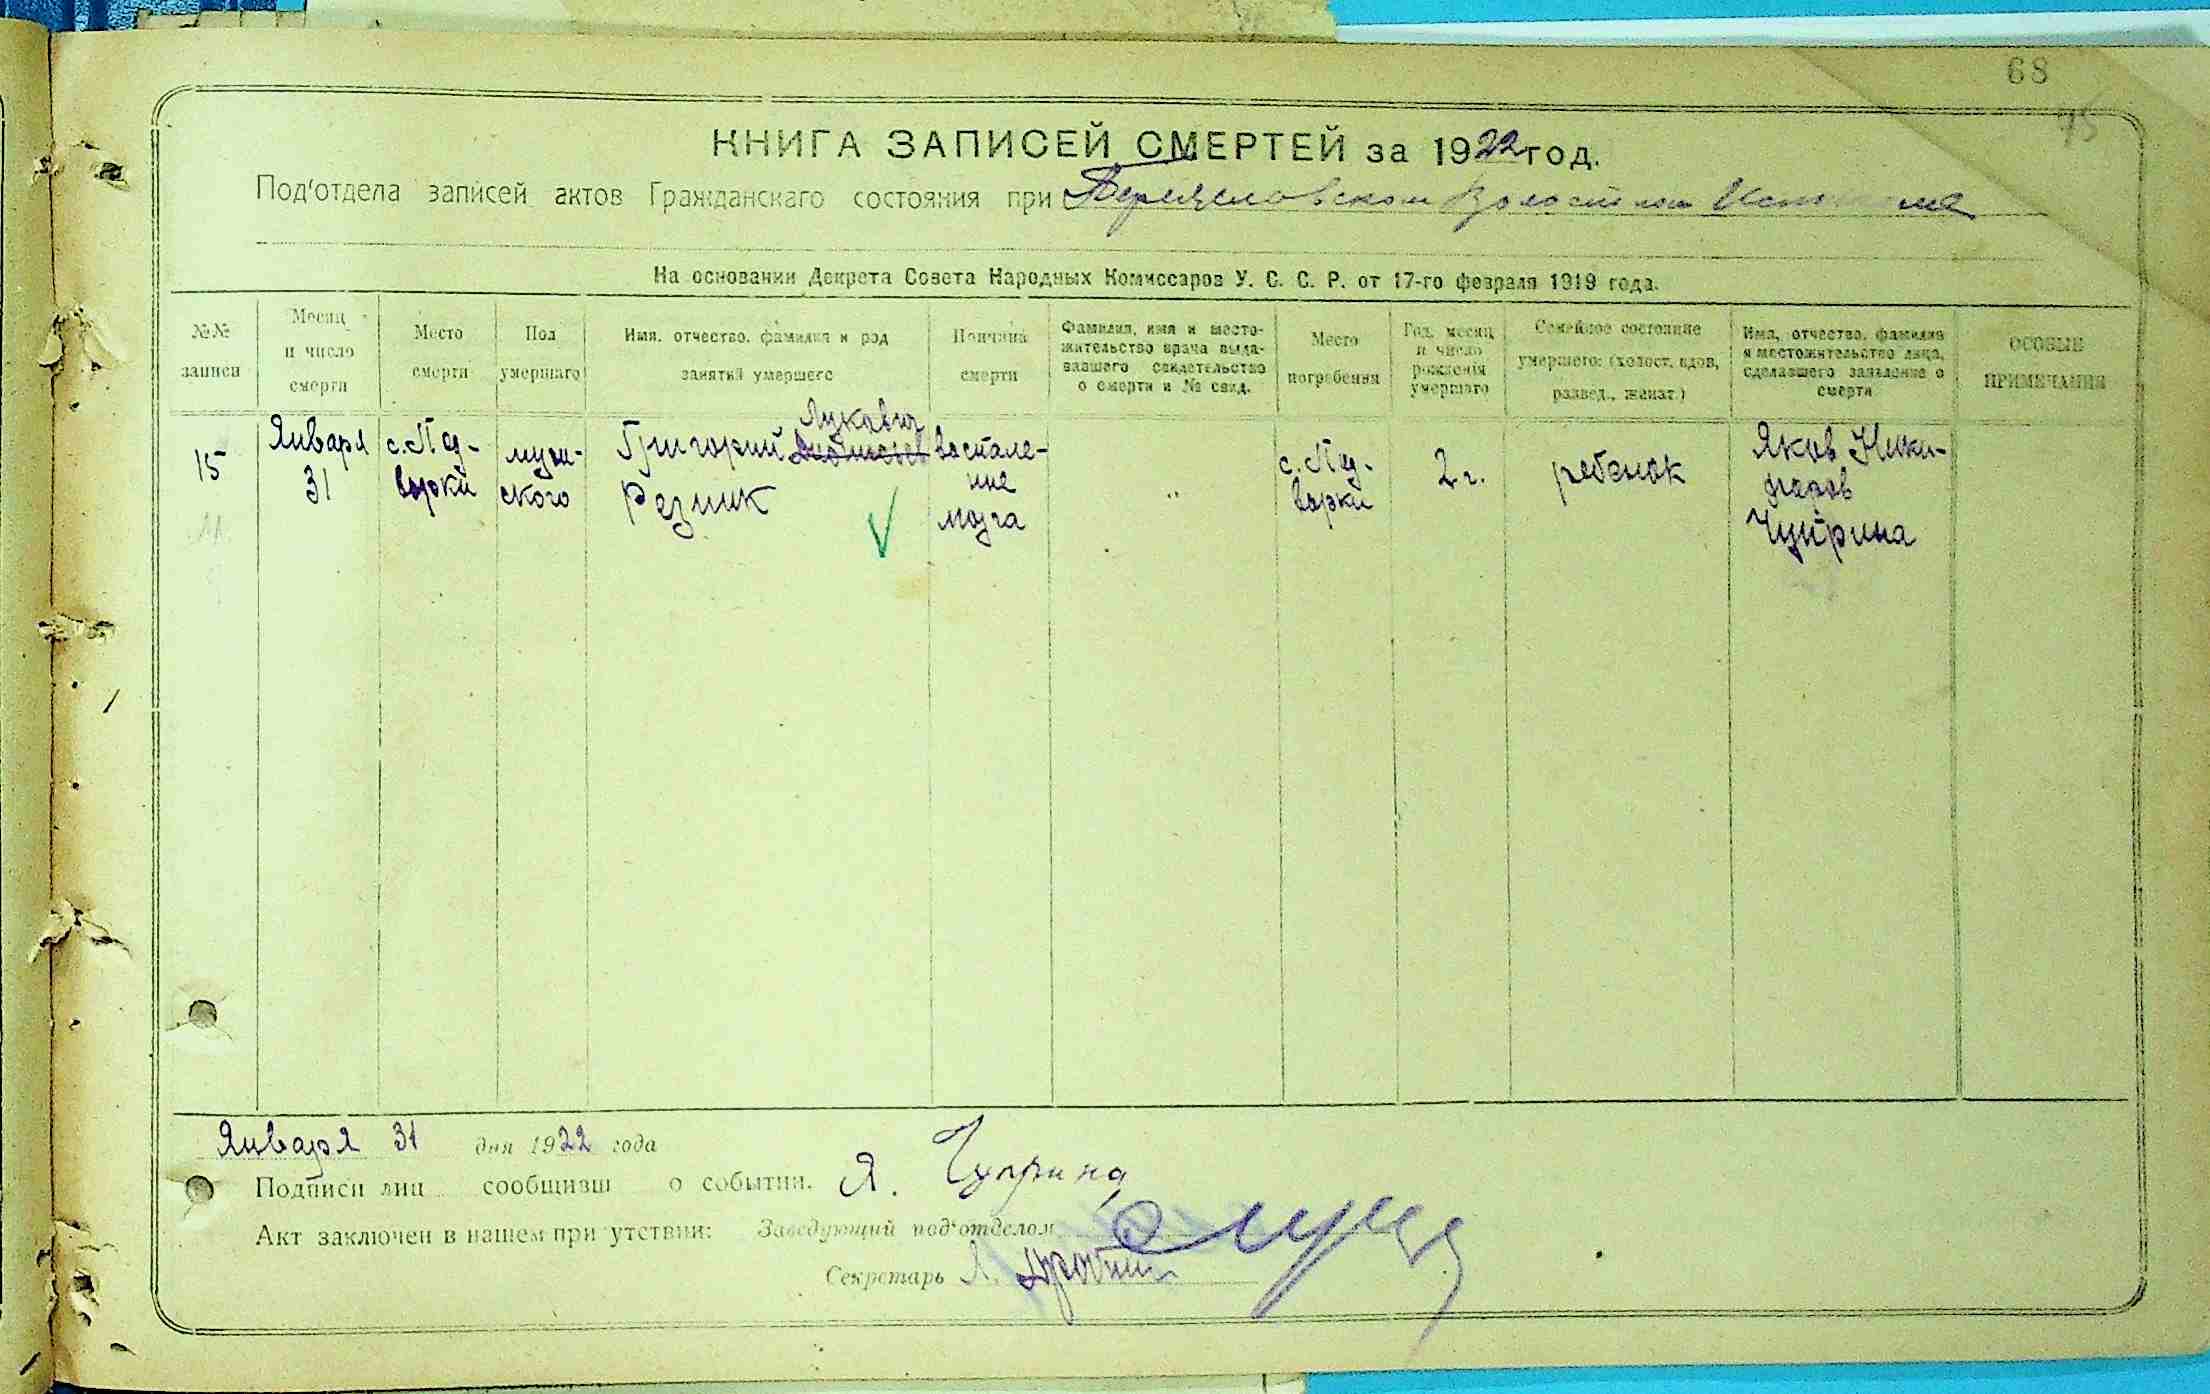 68
75
КНИГА ЗАПИСЕЙ СМЕРТЕЙ за 1922 год.
Под'отдела записей актов Гражданскаго состояния при Переясловском Волостном
На основании Декрета Совета Народных Комиссаров У. С. С. Р. от 17-го февраля 1919 года.
№№ записи
Месяц и число смерти
Место смерти
Пол умершаго
Имя, отчество, фамилия и род занятий умершего
Причина смерти
Фамилия, имя и место-
жительство врача выда-
вавшего свидетельство
о смерти и № свид.
Место погребения
Год, месяц и число рождения умершаго
Семейное состояние умершего: (холост, вдов, развед., женат.)
Имя, отчество, фамилия и местожительство лица, сделавшего заявление о смерти
ОСОБЫЕ ПРИМЕЧАНИЯ
15
Января 31
с. Под-
ворки
муж-
ского
Григорий Лукович
Резник
воспале-
ние
мозга
"
с. Под-
ворки
2 г.
ребенок
Яков Ники-
форов
Чуприна
Января 31 дня 1922 года
Подписи лиц сообщивш о событии. Я. Чуприна
Акт заключен в нашем при утствии: Заведующий под'отделом
Секретарь